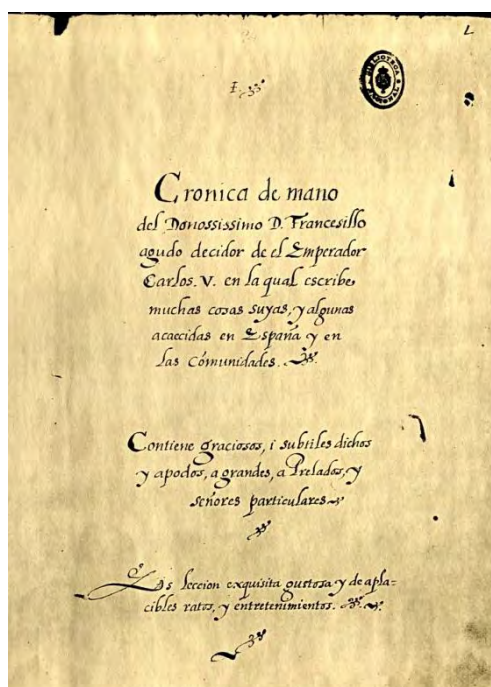 Cronica de mano
del Donossissimo D. Francesillo
agudo decidor de el Emperador
Carlos. V. en la qual escribe
muchas cosas suyas, y algunas
acaecidas en España y en
las Cómunidades.
Contiene graciosos, i subtiles dichos
y apodos, a grandes, a Prelados, y
señores particulares
Es leccion exquisita gustosa y de apla=
cibles ratos, y entretenimientos.